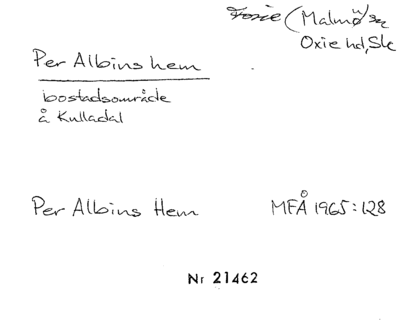 Foxie (Malmö sn
Oxie hd, Sk
Per Albins hem
bostadsområde
å Kulladal
Per Albins Hem MFÅ 1965:128
Nr 21462